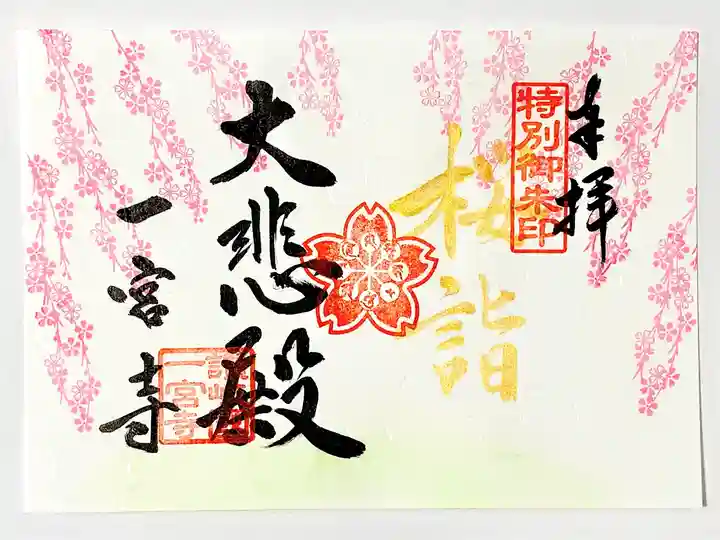 奉拝
特別御朱印
桜詣
大悲殿
一宮寺
讃岐
一宮寺